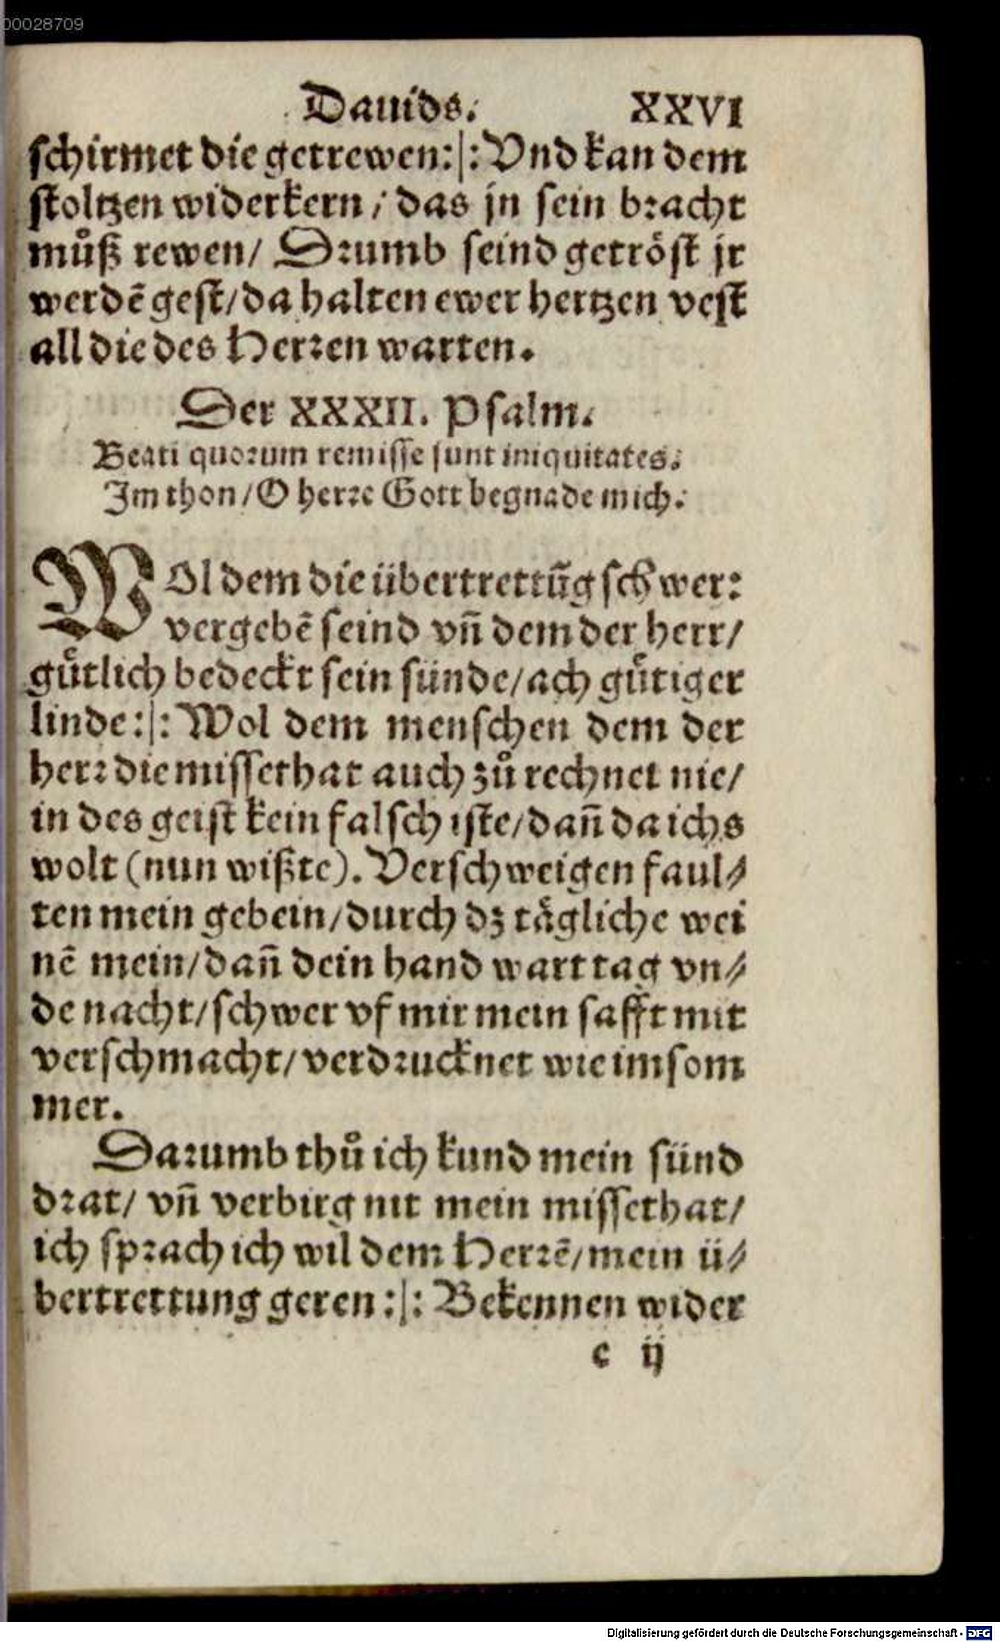 00028709
Dauids. XXVI
schirmet die getrewen:|: Vnd kan dem
stoltzen widerkern / das jn sein bracht
můß rewen/ Drumb seind getröst jr
werdē gest/da halten ewer hertzen vest
all die des Herren warten.
Der XXXII. Psalm.
Beati quorum remisse sunt iniquitates.
Im thon/O herre Gott begnade mich.
WOl dem die übertrettūg schwer:
vergebē seind vn̄ dem der herr/
gůtlich bedeckt sein sünde/ach gůtiger
linde:|: Wol dem menschen dem der
herr die missethat auch zů rechnet nie/
in des geist kein falsch iste/dan̄ da ichs
wolt (nun wißte). Verschweigen faul⸗
ten mein gebein/durch dz tägliche wei
nē mein/dan̄ dein hand wart tag vn⸗
de nacht/schwer vf mir mein safft mit
verschmacht/verdrucknet wie im som
mer.
Darumb thů ich kund mein sünd
drat/ vn̄ verbirg nit mein missethat/
ich sprach ich wil dem Herrē/mein ü⸗
bertrettung geren:|: Bekennen wider
c ij
Digitalisierung gefördert durch die Deutsche Forschungsgemeinschaft - DFG